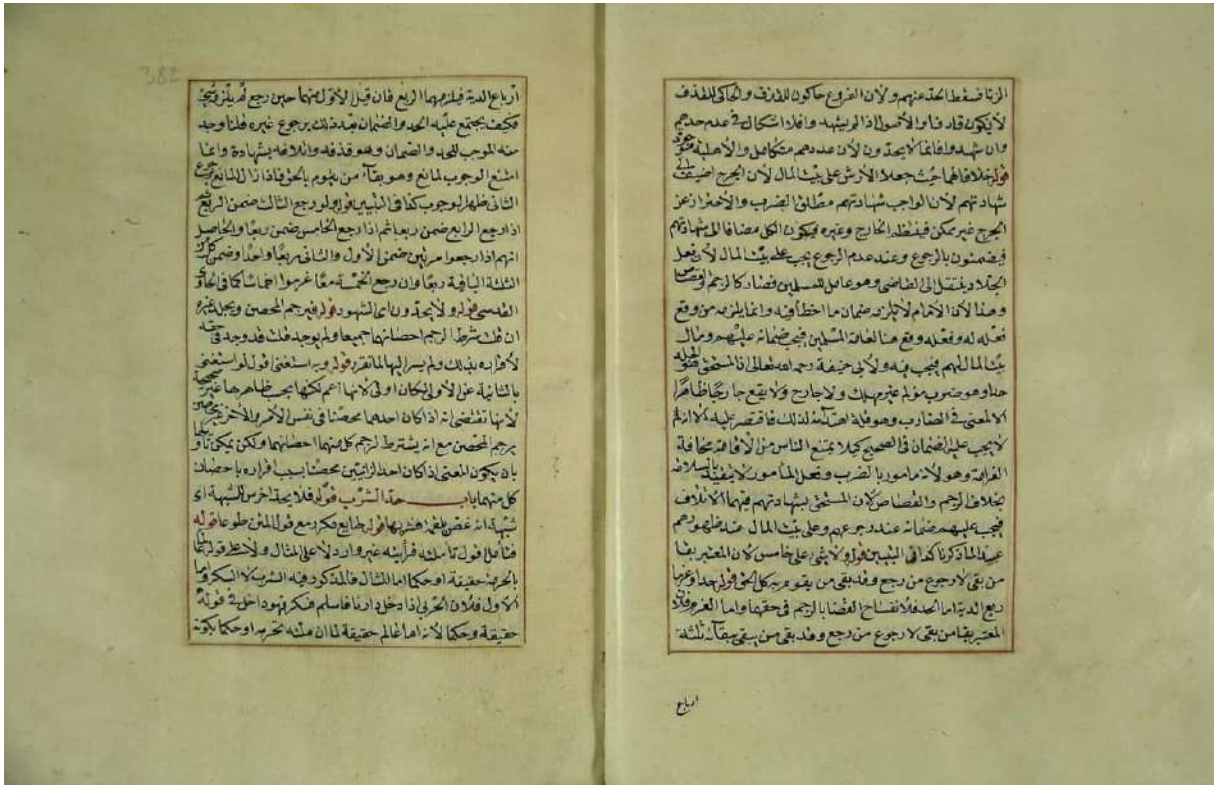 الزنا فسقط الحد عنهم ولان الفروع حاكون للقذف والحاكى للقذف
لا يكون قاذفا والأصول اذا لم يشهدوا فلا اشكال فى عدم حدهم
وان شهدوا فانما لا يحدّون لأن عددهم متكامل والأهلية موجودة
قوله خلافا لهما حيث جعلا الأرش على بيت المال لأن الجرح اضيف الى
شهادتهم لأن الواجب شهادتهم مطلق الضرب والأحتراز عن
الجرح غير ممكن فينتظم الجارح وغيره فيكون الكل مضافا الى شهادتهم
فيضمنون بالرجوع وعند عدم الرجوع يجب على بيت المال لأن فعل
الجلاد ينتقل الى القاضى وهو عامل للمسلمين فصار كالرجم والقصاص
وهذا لأن الأمام لا يلزمه ضمان ما اخطأ فيه وانما يلزمه من وقع
فعله له وفعله وقع هنا لعامة المسلمين فيجب ضمانه عليهم ومال
بيت المال لهم فيجب فيه ولأبى حنيفة رحمه الله تعالى ان المستحق هو الجلد
حدا وهو ضرب مؤلم غير مهلك ولا جارح ولا يقع جارحًا ظاهرا
الا لمعنى فى الضارب وهو قلة هدايته لذلك فاقتصر عليه الا انه لم
لا يجب عليه الضمان فى الصحيح كيلا يمتنع الناس من الأقامة مخافة
الغرامة وهو لأنه مامور بالضرب وفعل المأمور لا يتقيد بالسلامة
بخلاف الرجم والقصاص لان المستحق بشهادتهم فيهما الاتلاف
فيجب عليهم ضمانه عند رجوعهم وعلى بيت المال عند ظهورهم
عبيدا لما ذكرنا كذا فى التبيين قوله ولا شئ على خامس لان المعتبر بقا
من بقى لا رجوع من رجع وقد بقى من يقوم به كل الحق قوله حدا وغرما
ربع الدية اما الحد فلانفساخ القضا بالرجم فى حقهما واما الغرم فلان
المعتبر بقا من بقى لا رجوع من رجع وقد بقى من يبقى ببقائه ثلثة
ارباع
382
ارباع الدية فيلزمهما الربع فان قيل الأول منهما حين رجع لم يلزمه شئ
فكيف يجتمع عليه الحد والضمان بعد ذلك برجوع غيره قلنا وجد
منه الموجب للحد والضمان وهو قذفه واتلافه بشهادة وانما
امتنع الوجوب لمانع وهو بقاء من يقوم بالحق فاذا زال المانع برجوع
الثانى ظهر الوجوب كذا فى التبيين قوله ولو رجع الثالث ضمن الربع ثم
اذا رجع الرابع ضمن ربعا ثم اذا رجع الخامس ضمن ربعًا والحاصل
انهم اذا رجعوا مرتبين ضمن الأول والثانى ربعًا واحدًا وضمن كل من
الثلثة الباقية ربعًا وان رجع الخمسة معًا غرموا اخماسًا كما فى الحاوى
القدسى قوله ولا يحدّون اى الشهود قوله فيرجم المحصن ويجلد غيره
ان قلت شرط الرجم احصانهما جميعا ولم يوجد قلت قد وجد فى حقه
لأقراره بذلك ولم يسر اليها لما تقرر قوله وبه استغنى قول لو استغنى
بالثانية عن الأولى لكان اولى لأنها اعم لكنها بحسب ظاهرها غير صحيحة
لأنها تقتضى انه اذا كان احدهما محصنا فى نفس الأمر والأخر غير محصن
يرجم المحصن مع انه يشترط لرجم كل منهما احصانهما ولكن يمكن تاويلها
بان يكون المعنى اذا كان احد الزانيين محصنا بسبب اقراره باحصان
كل منهما باب حد الشرب قوله فلا يحد اخرس للشبهة اى
شبهة انه غص بلقمة فشربها قوله طايع مكرر مع قول المتن طوعا قوله
فتأمل قول تأملته فرأيته غير وارد لا على المثال ولا على قوله عالما
بالحرمة حقيقة او حكما اما المثال فالمذكور فيه الشرب لا السكر واما
الاول فلان الحربى اذا دخل دارنا فاسلم فسكر فهو داخل فى قوله
حقيقة وحكما لأنه اما عالم حقيقة لما ان ملته تحرمه او حكما بكونه